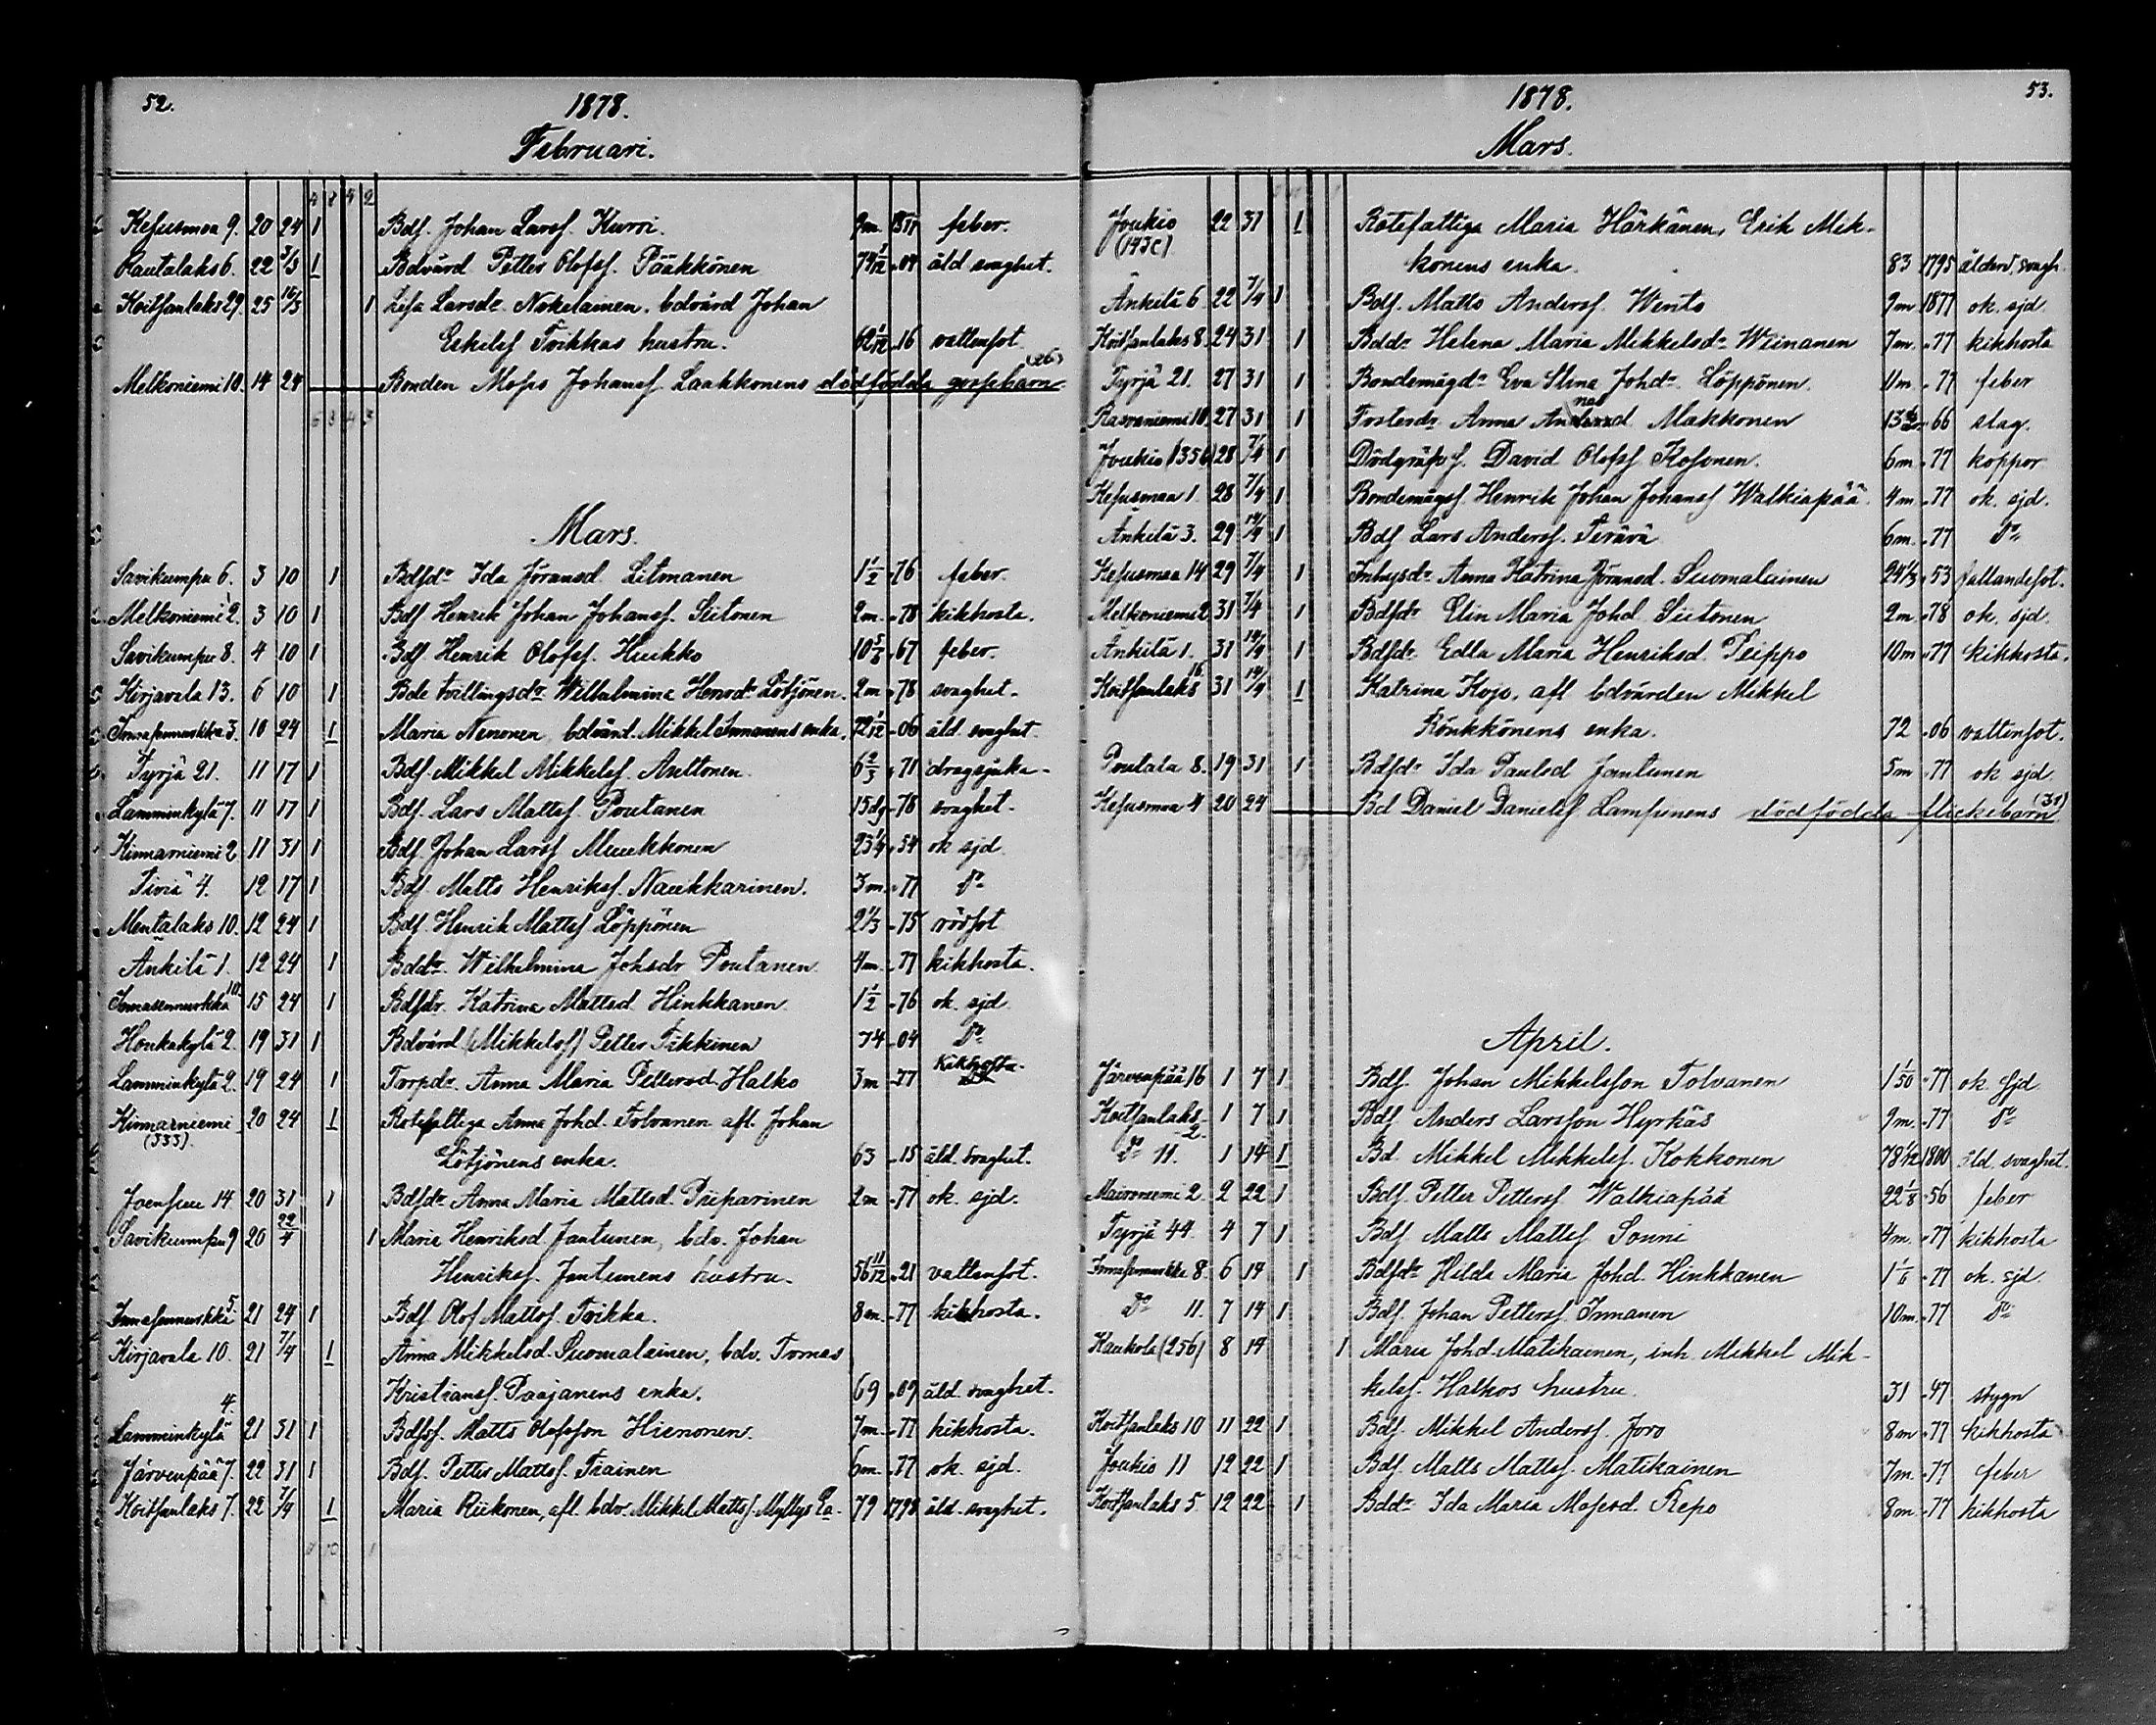 52.
1878.
Februari.
Kesusmaa 9. 20 24 1 Bdf. Johan Larsf. Kurri. 9m. 1877 feber.
Rautalaks 6. 22 3/3 1 Bdvärd Petter Olofsf. Pääkkönen 74 1/12 -04 åld. svaghet.
Koitsanlaks 29. 25 16/3 1 Lisa Larsdr. Nokelainen, bdvärd Johan
Eskelsf Toikkas hustru. 62 1/12 -16 vattensot.
Melkoniemi 18. 14 24 Bonden Moses Johansf Laakkonens dödfödda gossebarn (26)
Mars.
Savikumpu 6. 3 10 1 Bdfdr. Ida Göransd. Litmanen 1 1/2 -76 feber.
Melkoniemi 2. 3 10 1 Bdf Henrik Johan Johansf. Siitonen 2m. -78 kikhosta.
Savikumpu 8. 4 10 1 Bdf. Henrik Olofsf. Huikko 10 5/6 -67 feber.
Kirjavala 13. 6 10 1 Bde tvillingsdr Wilhelmina Henrdr. Lötjönen. 2m -78 svaghet.
Innasennurkka 3. 10 24 1 Maria Nenonen, bdvärd. Mikkel Innanens enka. 72 1/12 -06 åld. svaghet.
Tyrjä 21. 11 17 1 Bdf. Mikkel Mikkelsf. Anttonen. 6 2/3 -71 dragsjuka.
Lamminkylä 7. 11 17 1 Bdf. Lars Mattsf. Poutanen 15dg -78 svaghet.
Kinnarniemi 2 11 31 1 Bdf. Johan Larsf Muukkonen 23 1/4 -54 ok sjd.
Tiviä 4. 12 17 1 Bdf. Matts Henriksf. Naukkarinen. 3m. -77 Do
Mentalaks 10. 12 24 1 Bdf. Henrik Mattsf Löppönen 2 1/3 -75 rödsot
Änkilä 1. 12 24 1 Bddr. Wilhelmina Johsdr Poutanen 4m. -77 kikhosta.
Innasennurkka 10 15 24 1 Bdfdr. Katrina Mattsd. Hinkkanen 1 1/2 -76 ok. sjd.
Honkakylä 2. 19 31 1 Bdvärd (Mikkelsf) Petter Tikkinen 74 -04 Do
Lamminkylä 2. 19 24 1 Torpdr. Anna Maria Pettersd. Halko 3m -77 Kikhosta.
Kinnarniemi 20 24 1 Rotefattiga Anna Johd. Tolvanen afl. Johan
(333).
Lötjönens enka. 63 -15 åld. svaghet.
Joensuu 14 20 31 1 Bdfdr. Anna Maria Mattsd. Piiparinen 2m -77 ok. sjd.
Savikumpu 9 20 22/4 1 Maria Henriksd. Jantunen, bdv. Johan
Henriksf. Jantunens hustru. 56 11/12 -21 vattensot.
Innasennurkka 5. 21 24 1 Bdf. Olof Mattsf. Toikka. 8m. -77 kikhosta.
Kirjavala 10. 21 7/4 1 Anna Mikkelsd. Puomalainen, bdv. Tomas
Kristiansf. Paajanens enka. 69 -09 åld. svaghet.
Lamminkylä 4. 21 31 1 Bdfsf. Matts Olofsson Hienonen. 7m. -77 kikhosta.
Järvenpää 7. 22 31 1 Bdf. Petter Mattsf. Träinen 6m. -77 ok. sjd.
Koitsanlaks 7. 22 7/4 1 Maria Riikonen, afl. bdv. Mikkel Mattsf. Myllys Ea. 79 1798 åld. svaghet.
53.
1878.
Mars.
Joukio 22 31 1 Rotefattiga Maria Härkänen, Erik Mik-
konens enka. 83 1795 ålderd. svagh.
Änkilä 6 22 7/4 1 Bdf. Matts Andersf. Wento 9m 1877 ok. sjd.
Koitsanlaks 8. 24 31 1 Bddr. Helena Maria Mikkelsdr Weinanen 7m. -77 kikhosta
Tyrjä 21. 27 31 1 Bondemågdr. Eva Stina Johdr. Löppönen. 11m. -77 feber
Rasvaniemi 10. 27 31 1 Fosterdr. Anna Makkonen 13 -66 slag.
Joukio (356) 28 7/4 1 Dödgräfvf. David Olofsf Kosonen. 6m. -77 koppor
Kesusmaa 1. 28 7/4 1 Bondemågsf. Henrik Johan Johansf Walkiapää. 4m. -77 ok. sjd.
Änkilä 3. 29 14/4 1 Bdf Lars Andersf. Terävä 6m. -77 Do
Kesusmaa 14 29 7/4 1 Inhysdr. Anna Katrina Göransd. Suomalainen 24 1/3 -53 fallandesot.
Melkoniemi 2 31 7/4 1 Bdfdr. Elin Maria Johd. Siitonen 2m. -78 ok. sjd.
Änkilä 1. 31 14/4 1 Bdfdr. Edla Maria Henriksd. Peippo 10m -77 kikhosta.
Koitsanlaks 16 31 14/4 1 Katrina Kojo, afl bdvärden Mikkel
Rönkkönens enka. 72 -06 vattensot.
Poutala 8. 19 31 1 Bdfdr. Ida Paulsd Jantunen 5m -77 ok sjd.
Kesusmaa 4 20 24 Bd Daniel Danielsf Lampinens dödfödda flickebarn (31)
April.
Järvenpää 16 1 7 1 Bdf. Johan Mikkelsson Tolvanen 1 1/50 -77 ok. sjd.
Koitsanlaks 2. 1 7 1 Bdf. Anders Larsson Hyrkäs 9m. -77 Do
Do 11. 1 14 1 Bd. Mikkel Mikkelsf. Kokkonen 78 1/12 1800 åld. svaghet.
Maironiemi 2. 2 22 1 Bdf. Petter Pettersf Walkiapää 22 1/8 -56 feber
Tyrjä 44. 4 7 1 Bdf. Matts Mattsf Sonni 4m. -77 kikhosta
Innasennurkka 8. 6 14 1 Bdfdr. Hilda Maria Johd. Hinkkanen 1 1/6 -77 ok. sjd.
Do 11. 7 14 1 Bdf. Johan Pettersf. Innanen 10m. -77 Do
Kankola (256) 8 14 1 Maria Johd. Matikainen, inh. Mikkel Mik-
kelsf. Halkos hustru. 31 -47 stygn
Koitsanlaks 10 11 22 1 Bdf. Mikkel Andersf. Joro 8m -77 kikhosta
Joukio 11 12 22 1 Bdf. Matts Mattsf. Matikainen 7m. -77 feber
Koitsanlaks 5. 12 22 1 Bddr. Ida Maria Mosesd. Repo 8m. -77 kikhosta